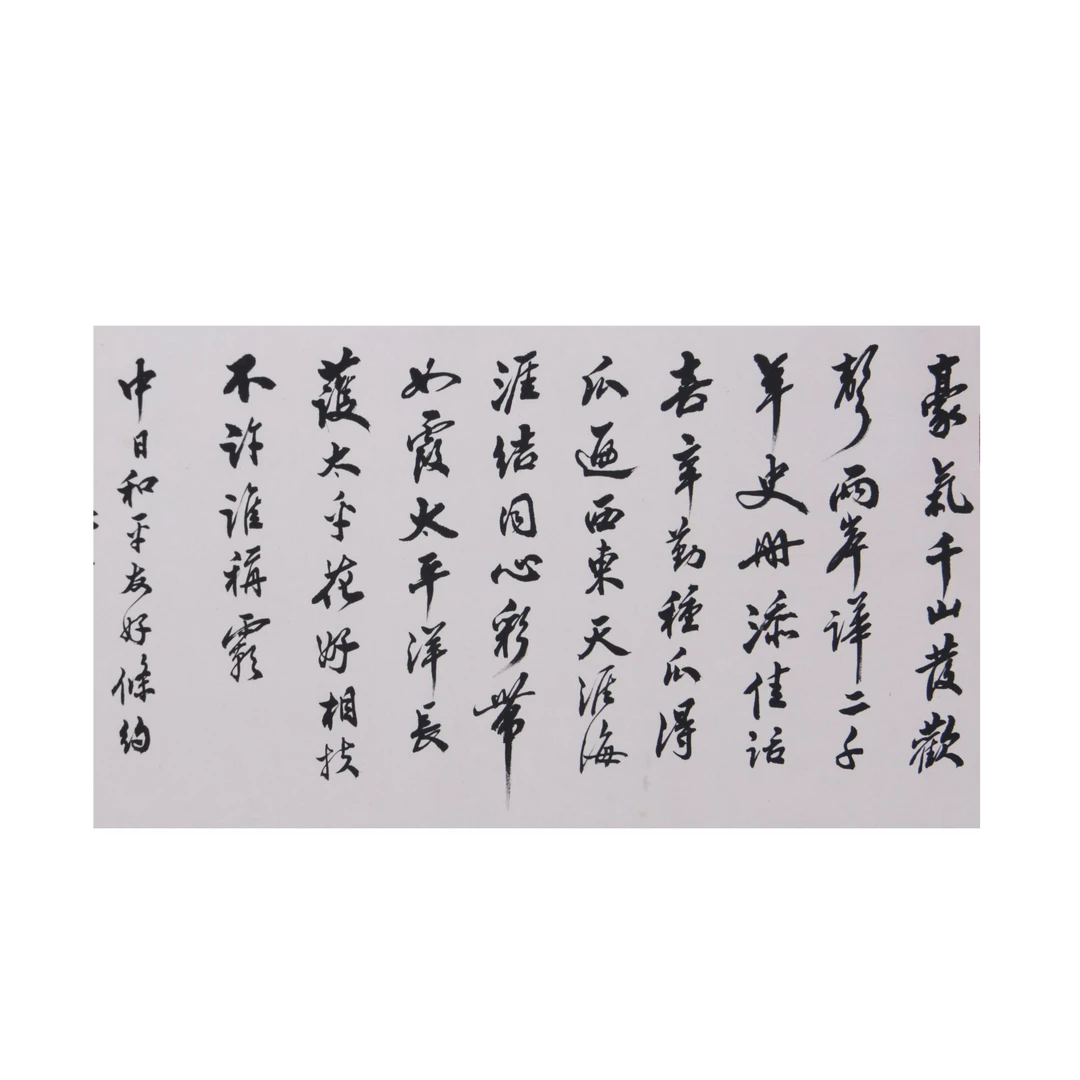 豪氣千山發歡
聲兩岸譁二千
年史册添佳話
喜辛勤種瓜得
瓜遍西東天涯海
涯結同心彩帶
如霞太平洋長
護太平花好相扶
不許誰稱霸
中日和平友好條約